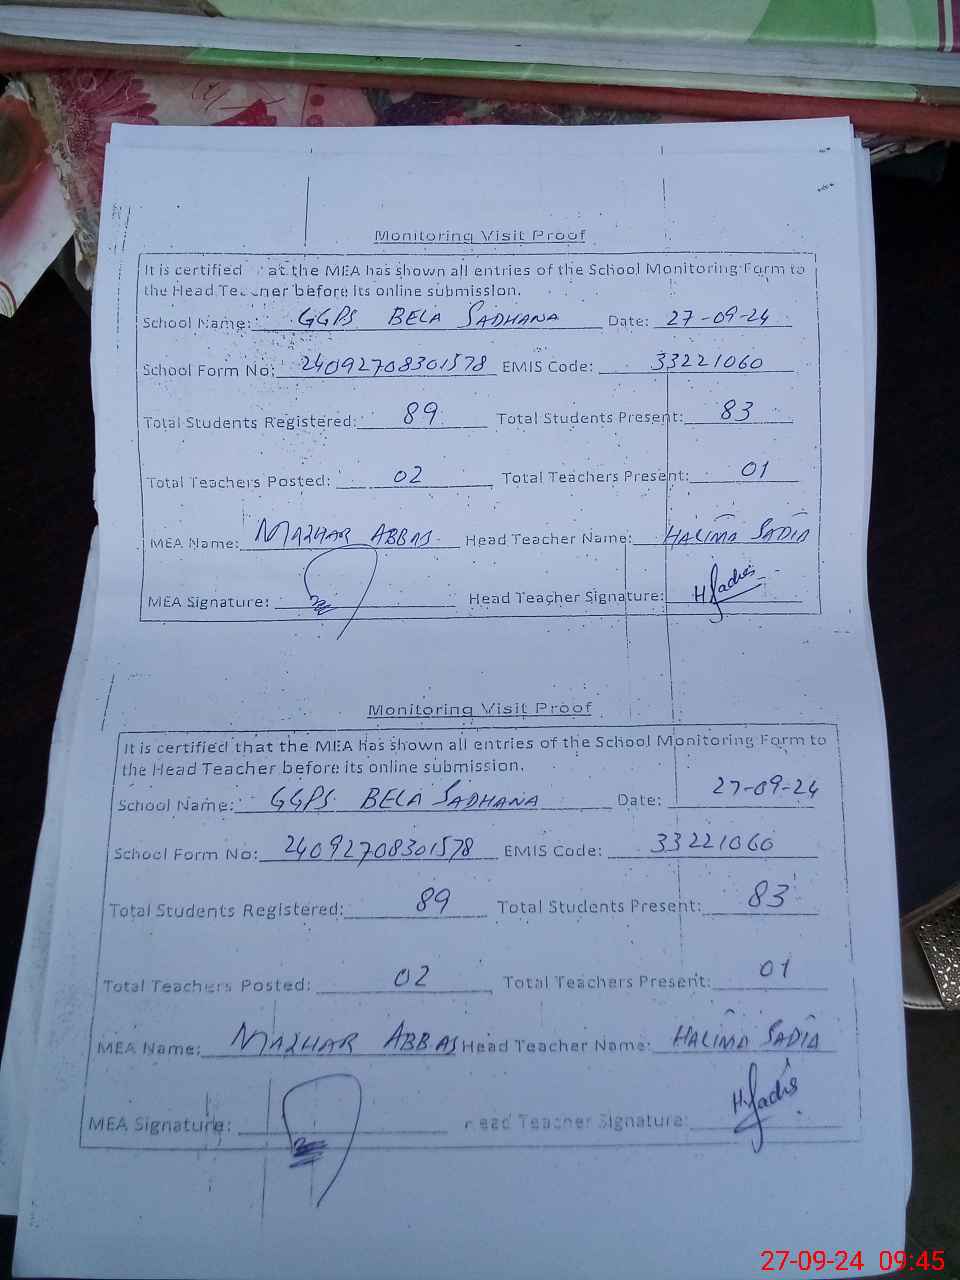 Monitoring Visit Proof
It is certified at the MEA has shown all entries of the School Monitoring Form to
the Head Teacher before its online submission.
School Name: GGPS BELA SADHANA Date: 27-09-24
School Form No: 24092708301578 EMIS Code: 33221060
Total Students Registered: 89 Total Students Present: 83
Total Teachers Posted: 02 Total Teachers Present: 01
MEA Name: MAZHAR ABBAS Head Teacher Name: HALIMA SADIA
MEA Signature: Head Teacher Signature: H Sadia
Monitoring Visit Proof
It is certified that the MEA has shown all entries of the School Monitoring Form to
the Head Teacher before its online submission.
School Name: GGPS BELA SADHANA Date: 27-09-24
School Form No: 24092708301578 EMIS Code: 33221060
Total Students Registered: 89 Total Students Present: 83
Total Teachers Posted: 02 Total Teachers Present: 01
MEA Name: MAZHAR ABBAS Head Teacher Name: HALIMA SADIA
MEA Signature: Head Teacher Signature: H. Sadia
27-09-24 09:45